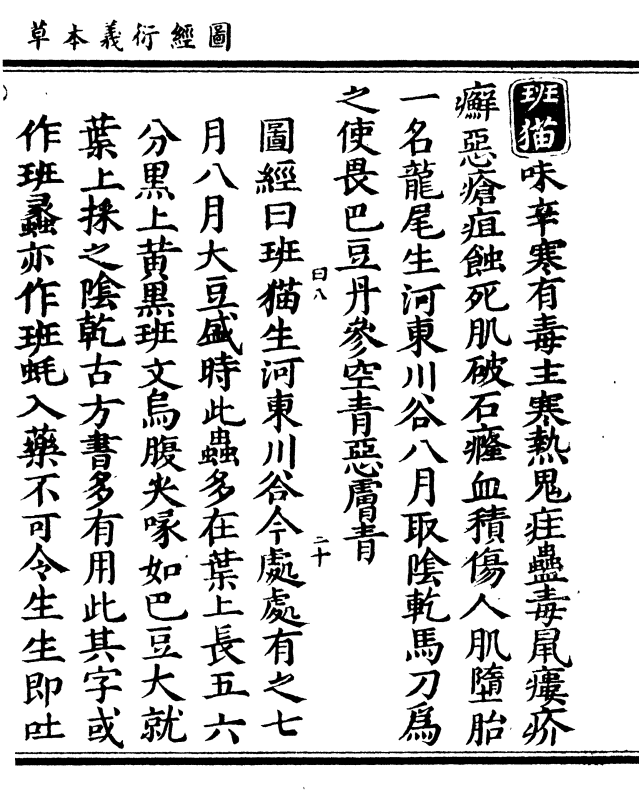 圖經衍義本草
班猫味辛寒有毒主寒熱鬼疰蠱毒鼠瘻疥
癬惡瘡疽蝕死肌破石癃血積傷人肌墮胎
一名龍尾生河東川谷八月取陰乾馬刀爲
之使畏巴豆丹參空青惡膚青
曰八
二十
圖經曰班猫生河東川谷今處處有之七
月八月大豆盛時此蟲多在葉上長五六
分黑上黃黑班文烏腹尖喙如巴豆大就
葉上採之陰乾古方書多有用此其字或
作班蟊亦作班蚝入藥不可令生生即吐